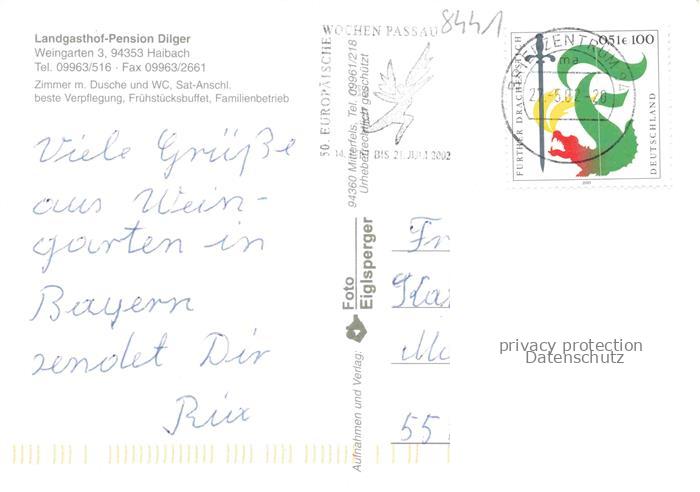 Landgasthof-Pension Dilger
Weingarten 3, 94353 Haibach
Tel. 09963/516 · Fax 09963/2661
Zimmer m. Dusche und WC, Sat-Anschl.
beste Verpflegung, Frühstücksbuffet, Familienbetrieb
Viele Grüße
aus Wein-
garten in
Bayern
sendet Dir
50. EUROPÄISCHE
WOCHEN PASSAU
BIS 21. JULI 2002
94360 Mitterfels, Tel. 09961/218
Urheberrechtlich geschützt
Foto
Eiglsperger
Aufnahmen und Verlag:
8441
FURTHER DRACHENSTICH
0,51€ 100
DEUTSCHLAND
BRIEFZENTRUM 94
ma
-5.02-20
Fr
Ka
M
55
privacy protection
Datenschutz